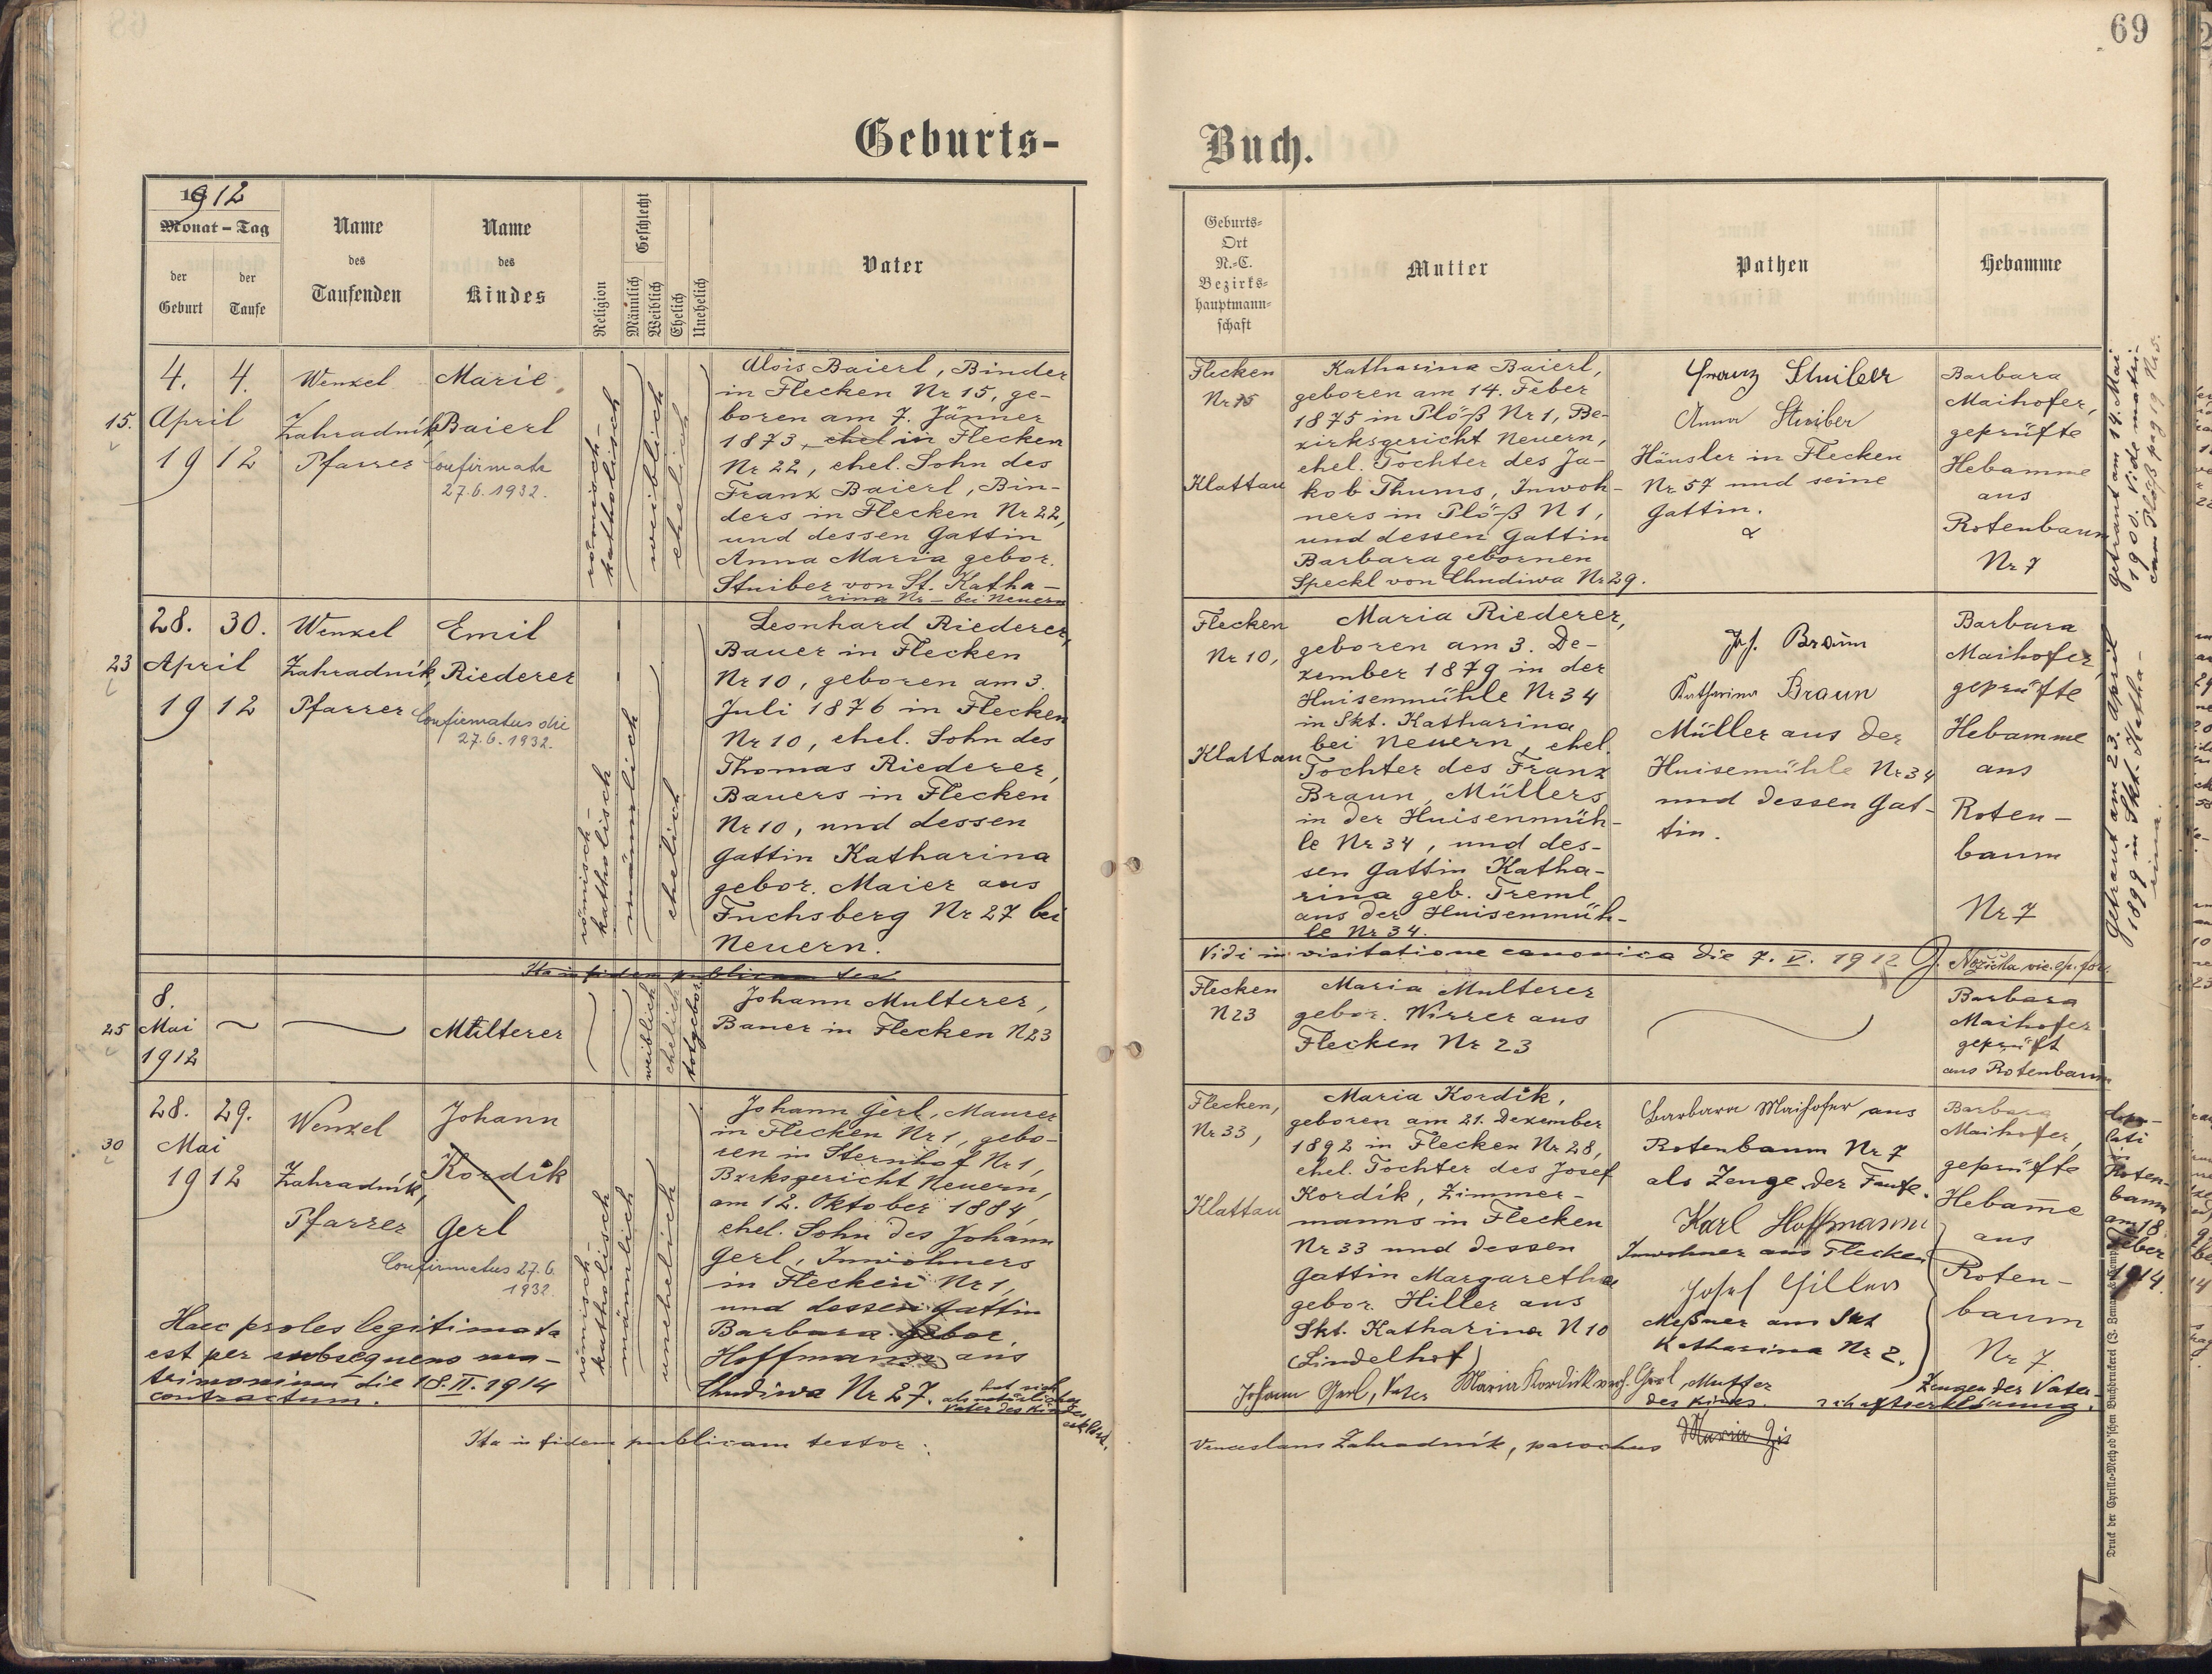 69
Geburts-
Buch.
1912
Monat - Tag
der Geburt
der Taufe
Name des Taufenden
Name des Kindes
Religion
Geschlecht
Männlich
Weiblich
Ehelich
Unehelich
Vater
Geburts-
Ort
N.-C.
Bezirks-
hauptmann-
schaft
Mutter
Pathen
Hebamme
15.
4. 4.
April
1912
Wenzel
Zahradník,
Pfarrer
Marie
Baierl
Confirmata
27.6.1932.
römisch-
katholisch
weiblich
ehelich
Alois Baierl, Binder
in Flecken Nr 15, ge-
boren am 7. Jänner
1873, ehel in Flecken
Nr 22, ehel. Sohn des
Franz Baierl, Bin-
ders in Flecken Nr 22,
und dessen Gattin
Anna Maria gebor.
Stuiber von St. Katha-
rina Nr - bei Neuern
Flecken
Nr 15
Klattau
Katharina Baierl,
geboren am 14. Feber
1875 in Plöß Nr 1, Be-
zirksgericht Neuern,
ehel. Tochter des Ja-
kob Thums, Inwoh-
ners in Plöß N 1,
und dessen Gattin
Barbara gebornen
Speckl von Chudiwa Nr 29.
Franz Stuiber
Anna Stuiber
Häusler in Flecken
Nr 57 und seine
Gattin.
Barbara
Maihofer,
geprüfte
Hebamme
aus
Rotenbaum
Nr 7
getraut am 14. Mai
1900. Vide matri
cam Plöß pag 19 Nr 5.
23
28. 30.
April
1912
Wenzel
Zahradník,
Pfarrer
Emil
Riederer
Confirmatus die
27.6.1932.
römisch-
katholisch
männlich
ehelich
Leonhard Riederer,
Bauer in Flecken
Nr 10, geboren am 3.
Juli 1876 in Flecken
Nr 10, ehel. Sohn des
Thomas Riederer,
Bauers in Flecken
Nr 10, und dessen
Gattin Katharina
gebor. Maier aus
Fuchsberg Nr 27 bei
Neuern.
Flecken
Nr 10,
Klattau
Maria Riederer,
geboren am 3. De-
zember 1879 in der
Huisenmühle Nr 34
in Skt. Katharina
bei Neuern, ehel.
Tochter des Franz
Braun, Müllers
in der Huisenmüh-
le Nr 34, und des-
sen Gattin Katha-
rina geb. Treml
aus der Huisenmüh-
le Nr 34.
Jos. Braun
Katharina Braun
Müller aus der
Huisemühle Nr 34
und dessen Gat-
tin.
Barbara
Maihofer
geprüfte
Hebamme
aus
Roten-
baum
Nr 7
getraut am 23. April
1899 in Skt. Katha-
rina.
Ita in fidem publicam tes
Vidi in visitatione canonica die 7. V. 1912 J. Nožička vic. ep. for.
25
8.
Mai
1912
Multerer
weiblich
ehelich
totgeboren
Johann Multerer,
Bauer in Flecken N 23
Flecken
N 23
Maria Multerer
gebor. Wirrer aus
Flecken Nr 23
Barbara
Maihofer
geprüft
aus Rotenbaum
30
28. 29.
Mai
1912
Wenzel
Zahradník,
Pfarrer
Johann
Kordik
Gerl
Confirmatus 27.6.
1932.
römisch-
katholisch
männlich
unehelich
Johann Gerl, Maurer
in Flecken Nr 1, gebo-
ren in Sternhof Nr 1,
Bzrksgericht Neuern,
am 12. Oktober 1884,
ehel. Sohn des Johann
Gerl, Inwohners
in Flecken Nr 1,
und dessen Gattin
Barbara gebor.
Hoffmann aus
Chudiwa Nr 27. hat sich
als natürlicher
Vater des Kindes
erklärt.
Haec proles legitimata
est per subsequens ma-
trimonium die 18. II. 1914
contractum.
Flecken,
Nr 33,
Klattau
Maria Kordik,
geboren am 21. Dezember
1892 in Flecken Nr 28,
ehel. Tochter des Josef
Kordík, Zimmer-
manns in Flecken
Nr 33 und dessen
Gattin Margaretha
gebor. Hiller aus
Skt. Katharina N 10
(Lindelhof)
Barbara Maihofer, aus
Rotenbaum Nr 7
als Zeuge der Taufe.
Karl Hoffmann
Inwohner aus Flecken
Josef Hiller
Meßner am Skt
Katharina Nr 2.
Barbara
Maihofer,
geprüfte
Hebam̅e
aus
Roten-
baum
Nr 7.
Zeugen der Vater-
schaftserklärung.
Johann Gerl, Vater Maria Kordik verh. Gerl, Mutter
des Kindes.
in
Roten-
baum
am 18
Feber
1914.
Ita in fidem publicam testor:
Venceslaus Zahradník, parochus
Druck der Cyrillo-Method'schen Buchdruckerei